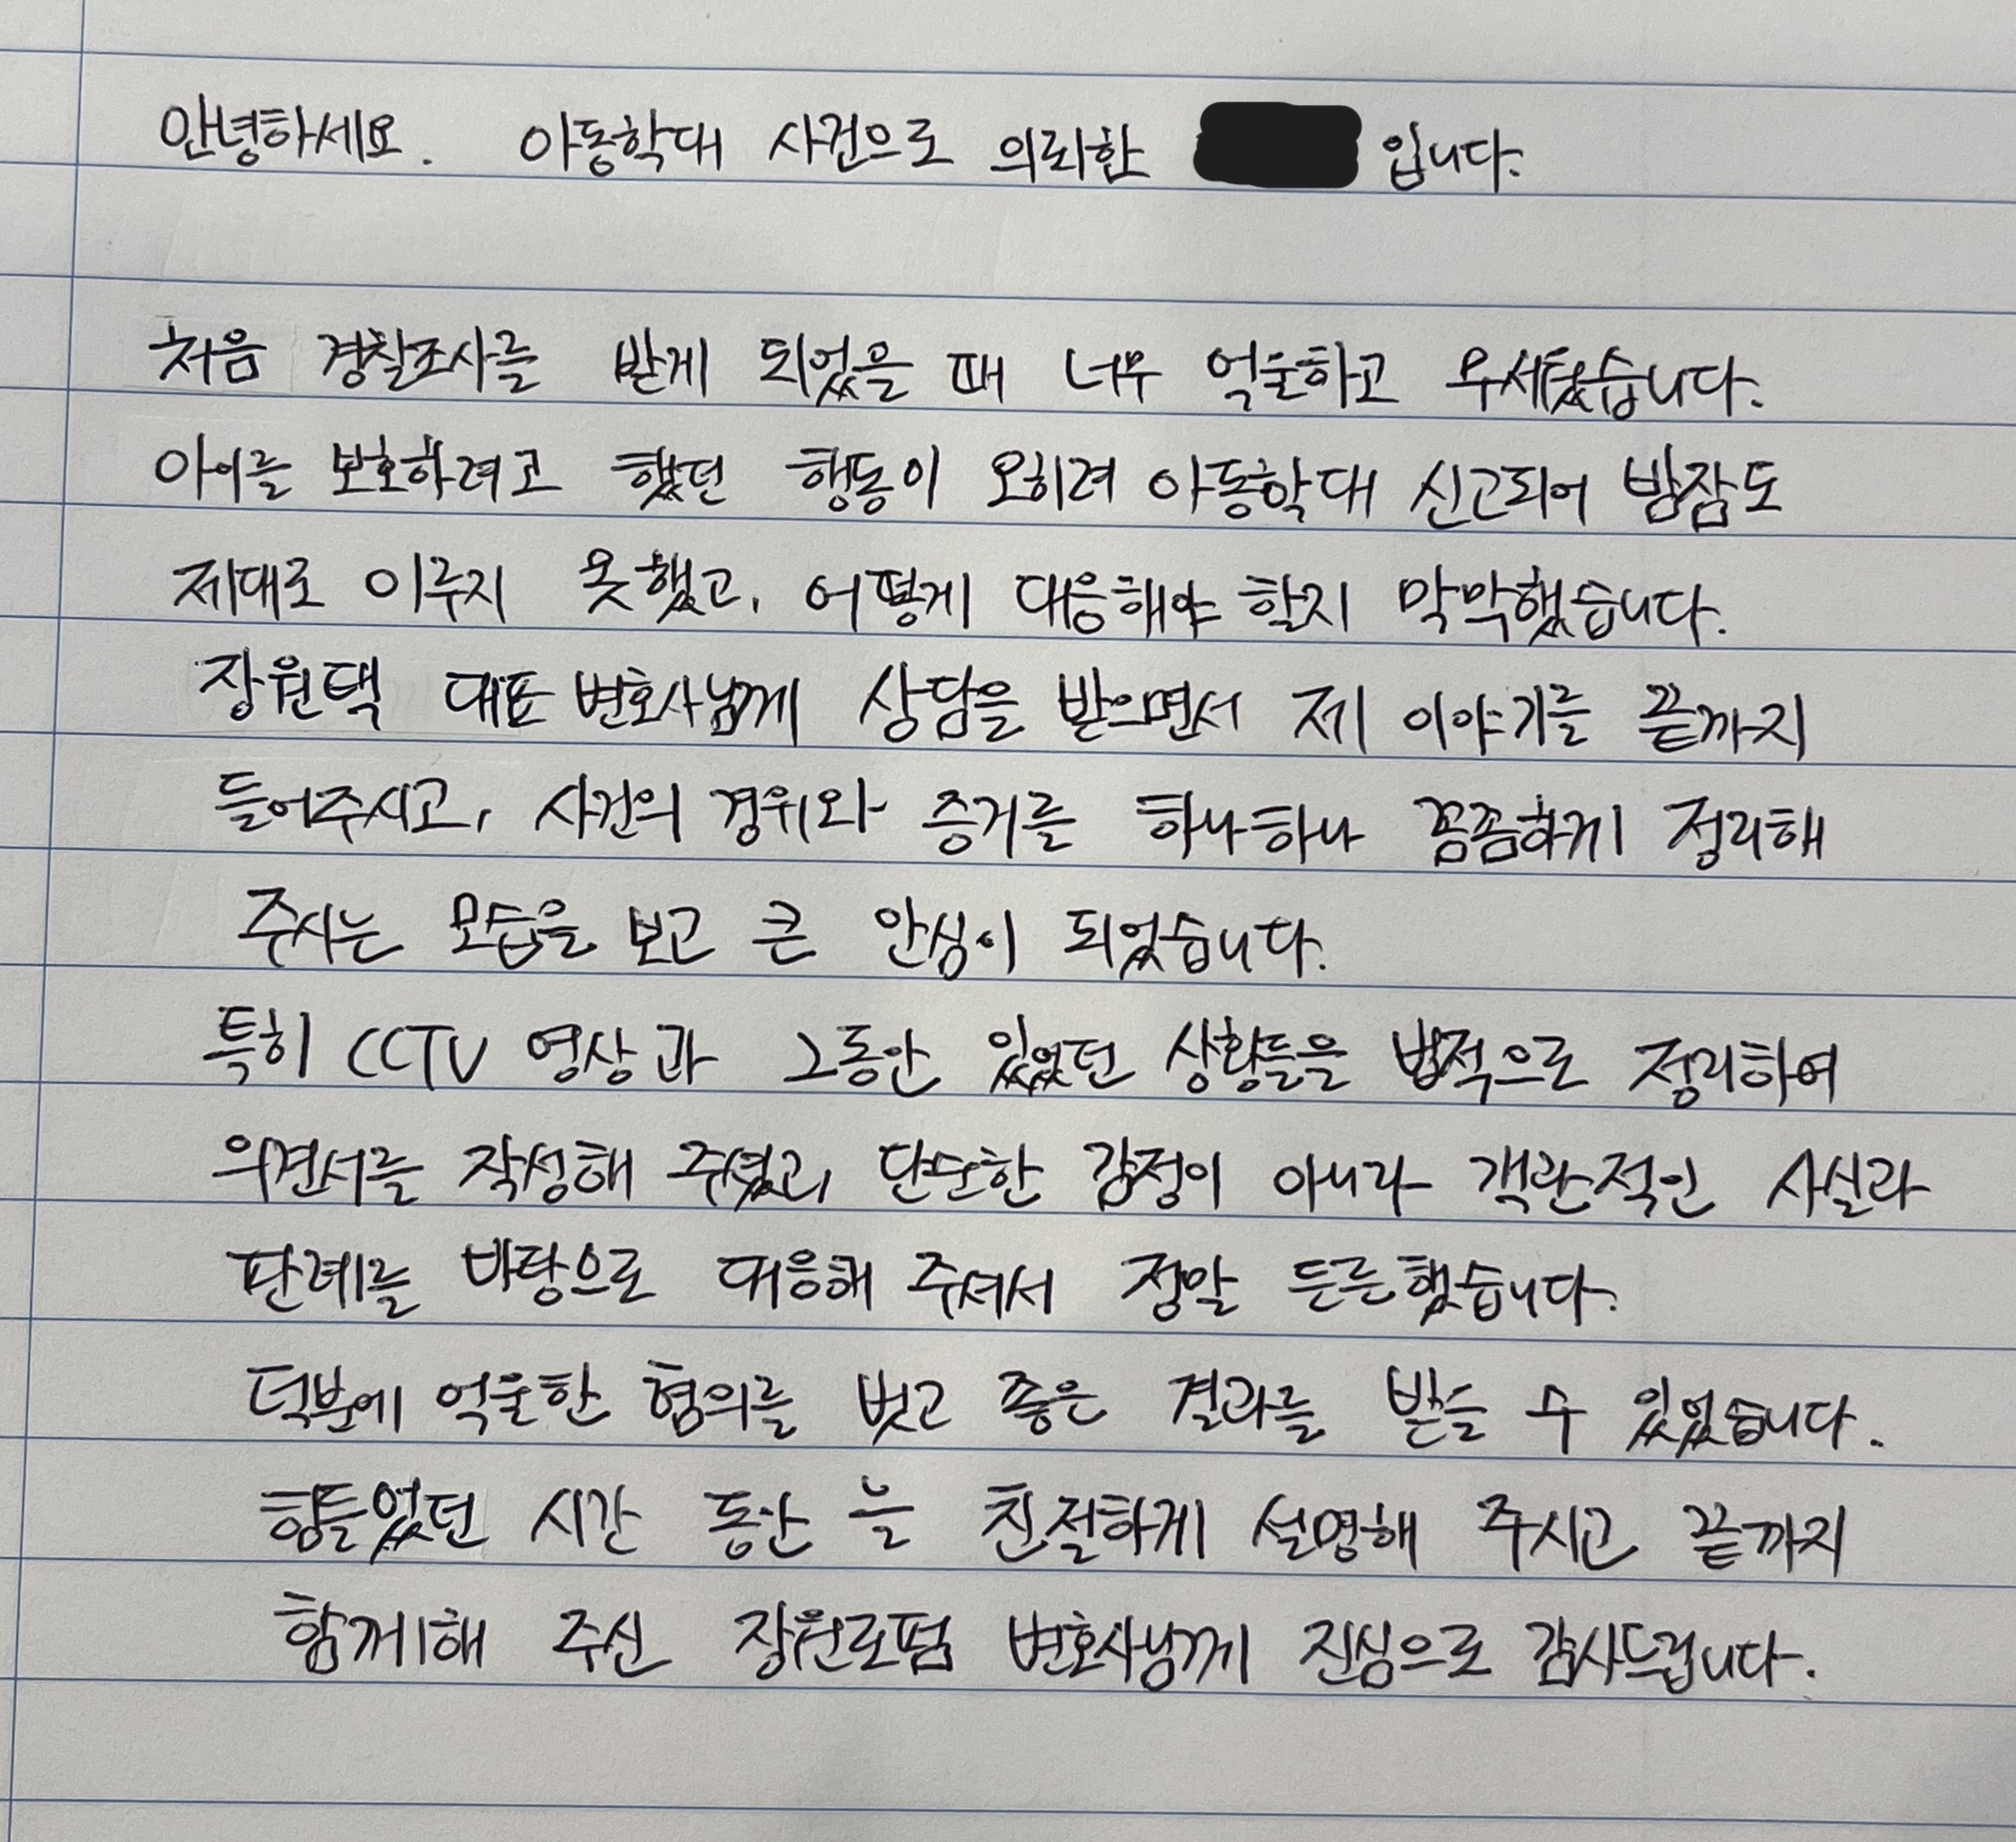 안녕하세요. 아동학대 사건으로 의뢰한 입니다.
처음 경찰조사를 받게 되었을 때 너무 억울하고 무서웠습니다.
아이를 보호하려고 했던 행동이 오히려 아동학대 신고되어 밤잠도
제대로 이루지 못했고, 어떻게 대응해야 할지 막막했습니다.
장원택 대표 변호사님께 상담을 받으면서 제 이야기를 끝까지
들어주시고, 사건의 경위와 증거를 하나하나 꼼꼼하게 정리해
주시는 모습을 보고 큰 안심이 되었습니다.
특히 CCTV 영상과 그동안 있었던 상황들을 법적으로 정리하여
의견서를 작성해 주셨고, 단순한 감정이 아니라 객관적인 사실과
판례를 바탕으로 대응해 주셔서 정말 든든했습니다.
덕분에 억울한 혐의를 벗고 좋은 결과를 받을 수 있었습니다.
힘들었던 시간 동안 늘 친절하게 설명해 주시고 끝까지
함께해 주신 장원로펌 변호사님께 진심으로 감사드립니다.